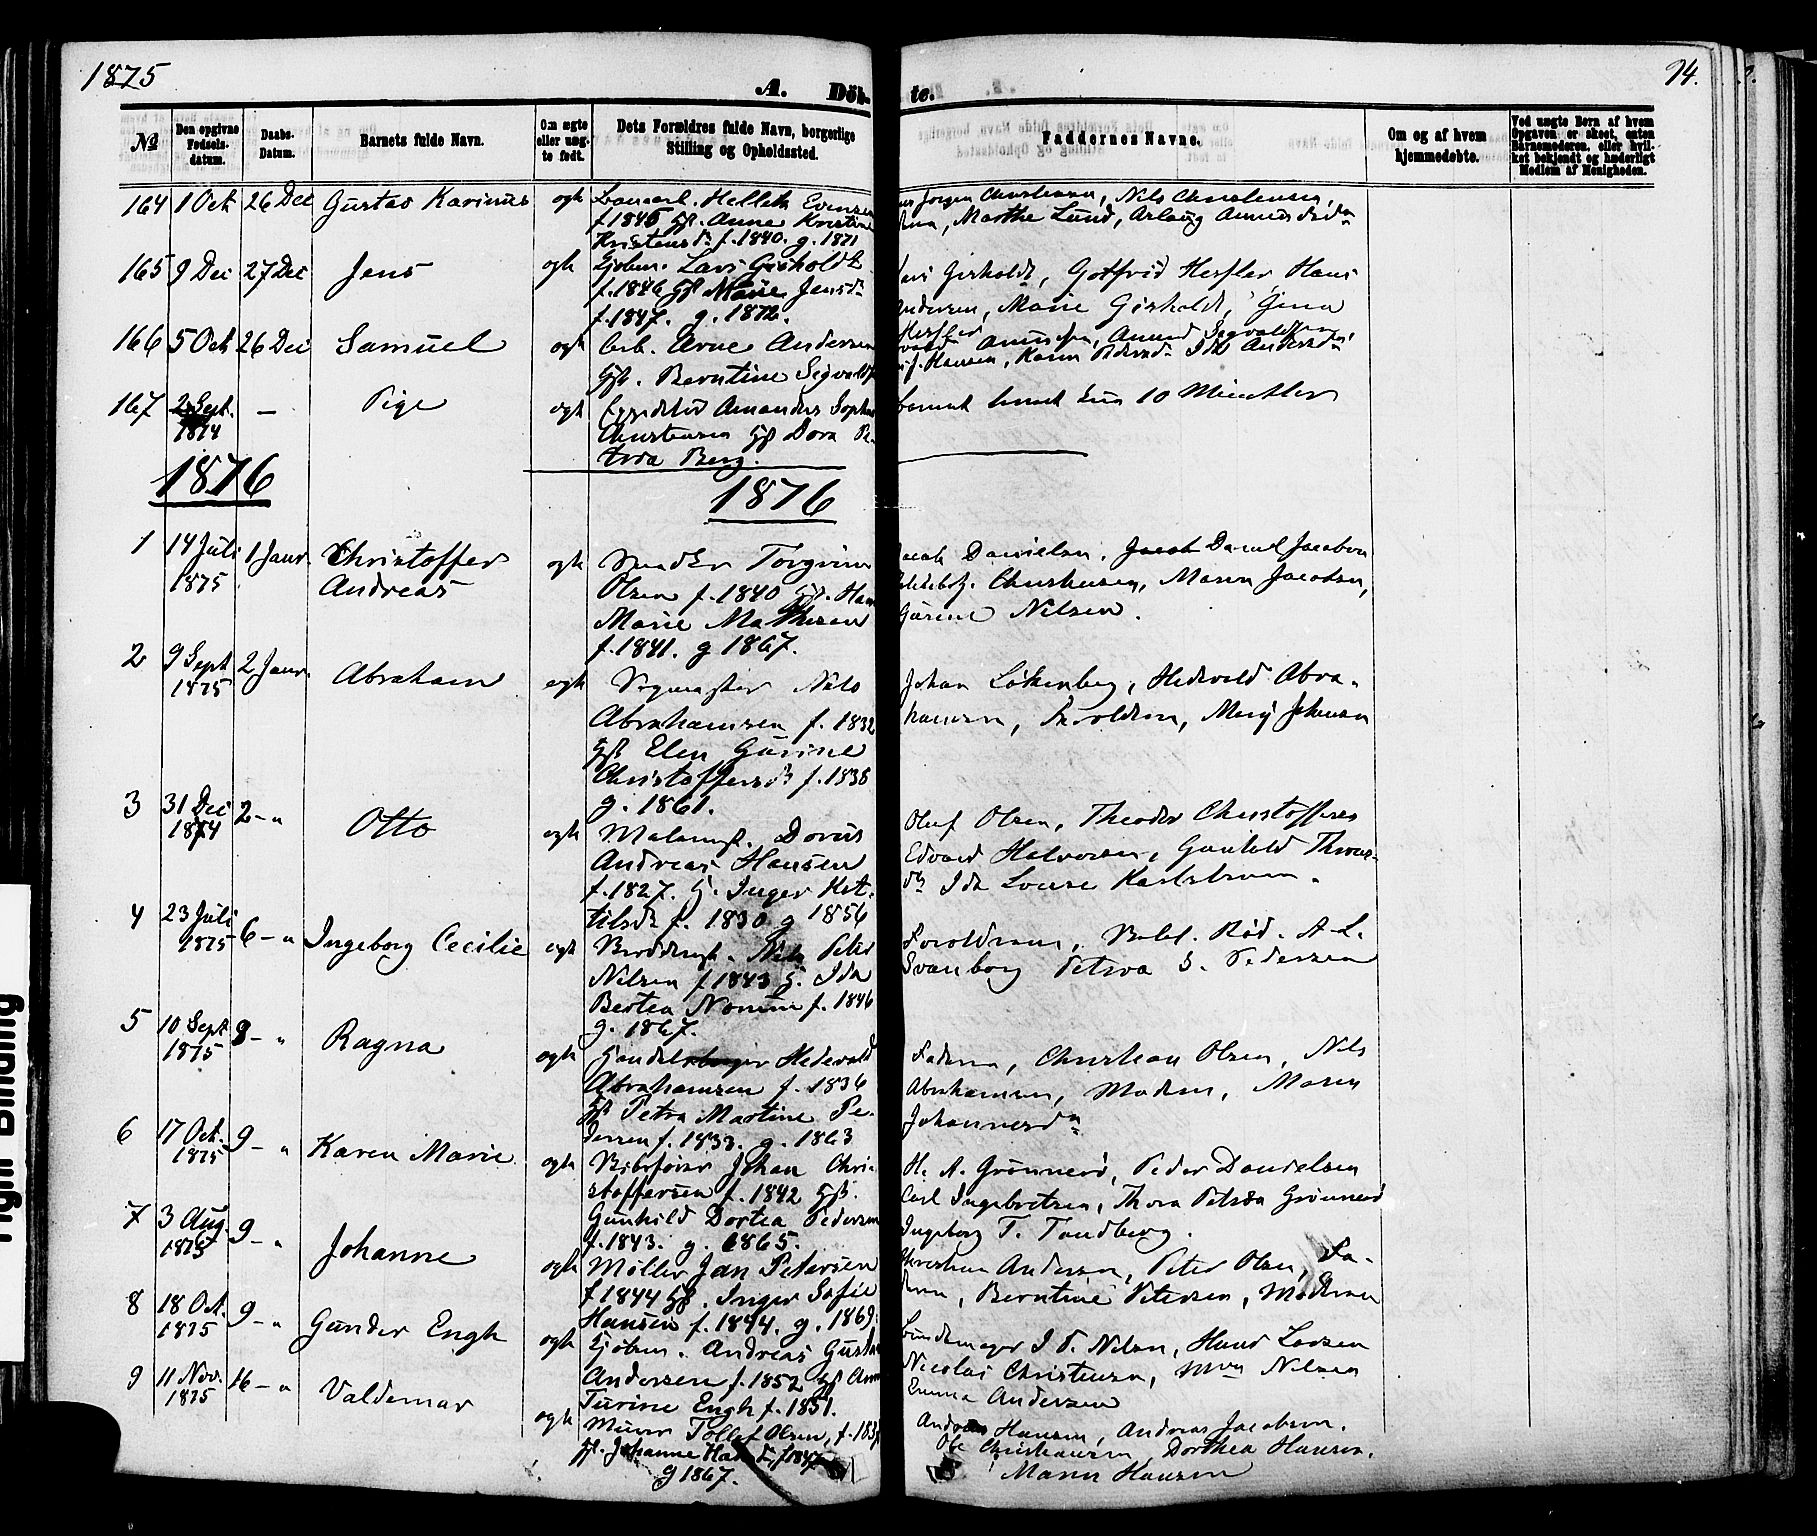 1875
A. Döb- te.
94.
№
Den opgivne Fødsels- datum.
Daabs- Datum.
Barnets fulde Navn.
Om ægte eller uæg- te født.
Dets Forældres fulde Navn, borgerlige Stilling og Opholdssted.
Faddernes Navne.
Om og af hvem hjemmedøbte.
Ved uægte Børn af hvem Opgaven er skeet, enten Barnemoderen, eller hvil- ket bekjendt og hæderligt Medlem af Menigheden.
164 1 Oct 26 Dec Gustav Karinus ægte Helleth Evensen
f. 1845 Gf. Anne Kristine
Kristensdr f. 1840. g. 1871
Jørgen Christensen, Nils Christensen,
Marthe Lund, Aslaug
165 9 Dec 27 Dec Jens ægte Lars Gisholdt
f. 1846 Gf Marie Jensdr
f. 1847. g. 1872.
Lars Gisholdt, Gotfrid Hesfler Hans
Andersen, Marie Gisholdt, Jena
Hesfler
166 5 Oct 26 Dec Samuel ægte Arb. Arne Andersen
Gf. Berntine
Hansen, Karen Ida Andersdr
167 2 Sept. 1874 — Pige ægte Amandus Sophus
Christensen Gf Dora Pe-
tvea Berg.
Barnet levet kun 10 Minutter
1876
1876
1 14 Juli 1875 1 Janr. Christoffer Andreas ægte Torgrim
Olsen f. 1840 Gf. Han
Marie Mathisen
f. 1841. g 1867.
Jacob Danielsen, Jacob Daniel Jacobsen
Christensen, Maren Jacobsen,
Gurine Nilsen.
2 9 Sept 1875 2 Janr. Abraham ægte Nils
Abrahamsen f. 1832
Gf Elen Gurine
Christoffersdr f. 1838
g. 1861.
Johan Løkenberg, Hedevald Abra-
hamsen, Moren, Johnsen
3 31 Dec 1874 2 - " Otto ægte Dorius
Andreas Hansen
f. 1827. G. Inger Ket-
tilsdr f. 1830 g 1856
Oluf Olsen, Theodor Christoffersen
Edvard Halvorsen, Gunhild Thomas-
dr Ida Lovise Karlstrøm.
4 23 Juli 1875 6 - " Ingeborg Cecilie ægte Nils Peter
Nilsen f. 1843 G. Ida
Bertea f. 1846
g. 1867.
Forældrene, Rød. A. L.
Svanborg Petrea S. Pedersen
5 10 Sept 1875 8 - " Ragna ægte Hedevald
Abrahamsen f. 1836
Gf Petra Martine Pe-
dersen f. 1833. g. 1863
Faderen, Christian Olsen, Nils
Abrahamsen, Moderen, Maren
Johannesdr
6 17 Oct. 1875 9 - " Karen Marie ægte Johan Chri-
stoffersen f. 1842 Gf.
Gunhild Dortea Pedersen
f. 1843. g. 1865.
H. A. Grønnerød, Peder Danielsen
Carl Ingebretsen, Thora Petrea Grønnerød
Ingeborg T. Tandberg.
7 3 Aug. 1875 9 - " Johanne ægte Møller Jan Petersen
f 1844 Gf. Inger Sofie
Hansen f. 1844. g. 1869.
Christian Andersen, Peter Olsen, Fa-
deren, Berntine Petersen, Moderen
8 18 Oct. 1875 9 - " Gunder Engh ægte Andreas Gustav
Andersen f. 1852 Gf Anne
Turine Engh f. 1851.
I. P. Nilsen, Hans Larsen
Nicolai Christensen, Nilsen
Emma Andersen
9 11 Nov. 1875 16 - " Valdemar ægte Murer Tollef Olsen, f. 183
Gf. Johanne f 1847
g 1867.
Andreas Hansen, Andreas Jacobsen.
Ole Christiansen, Dorthea Hansen.
Maren Hansen